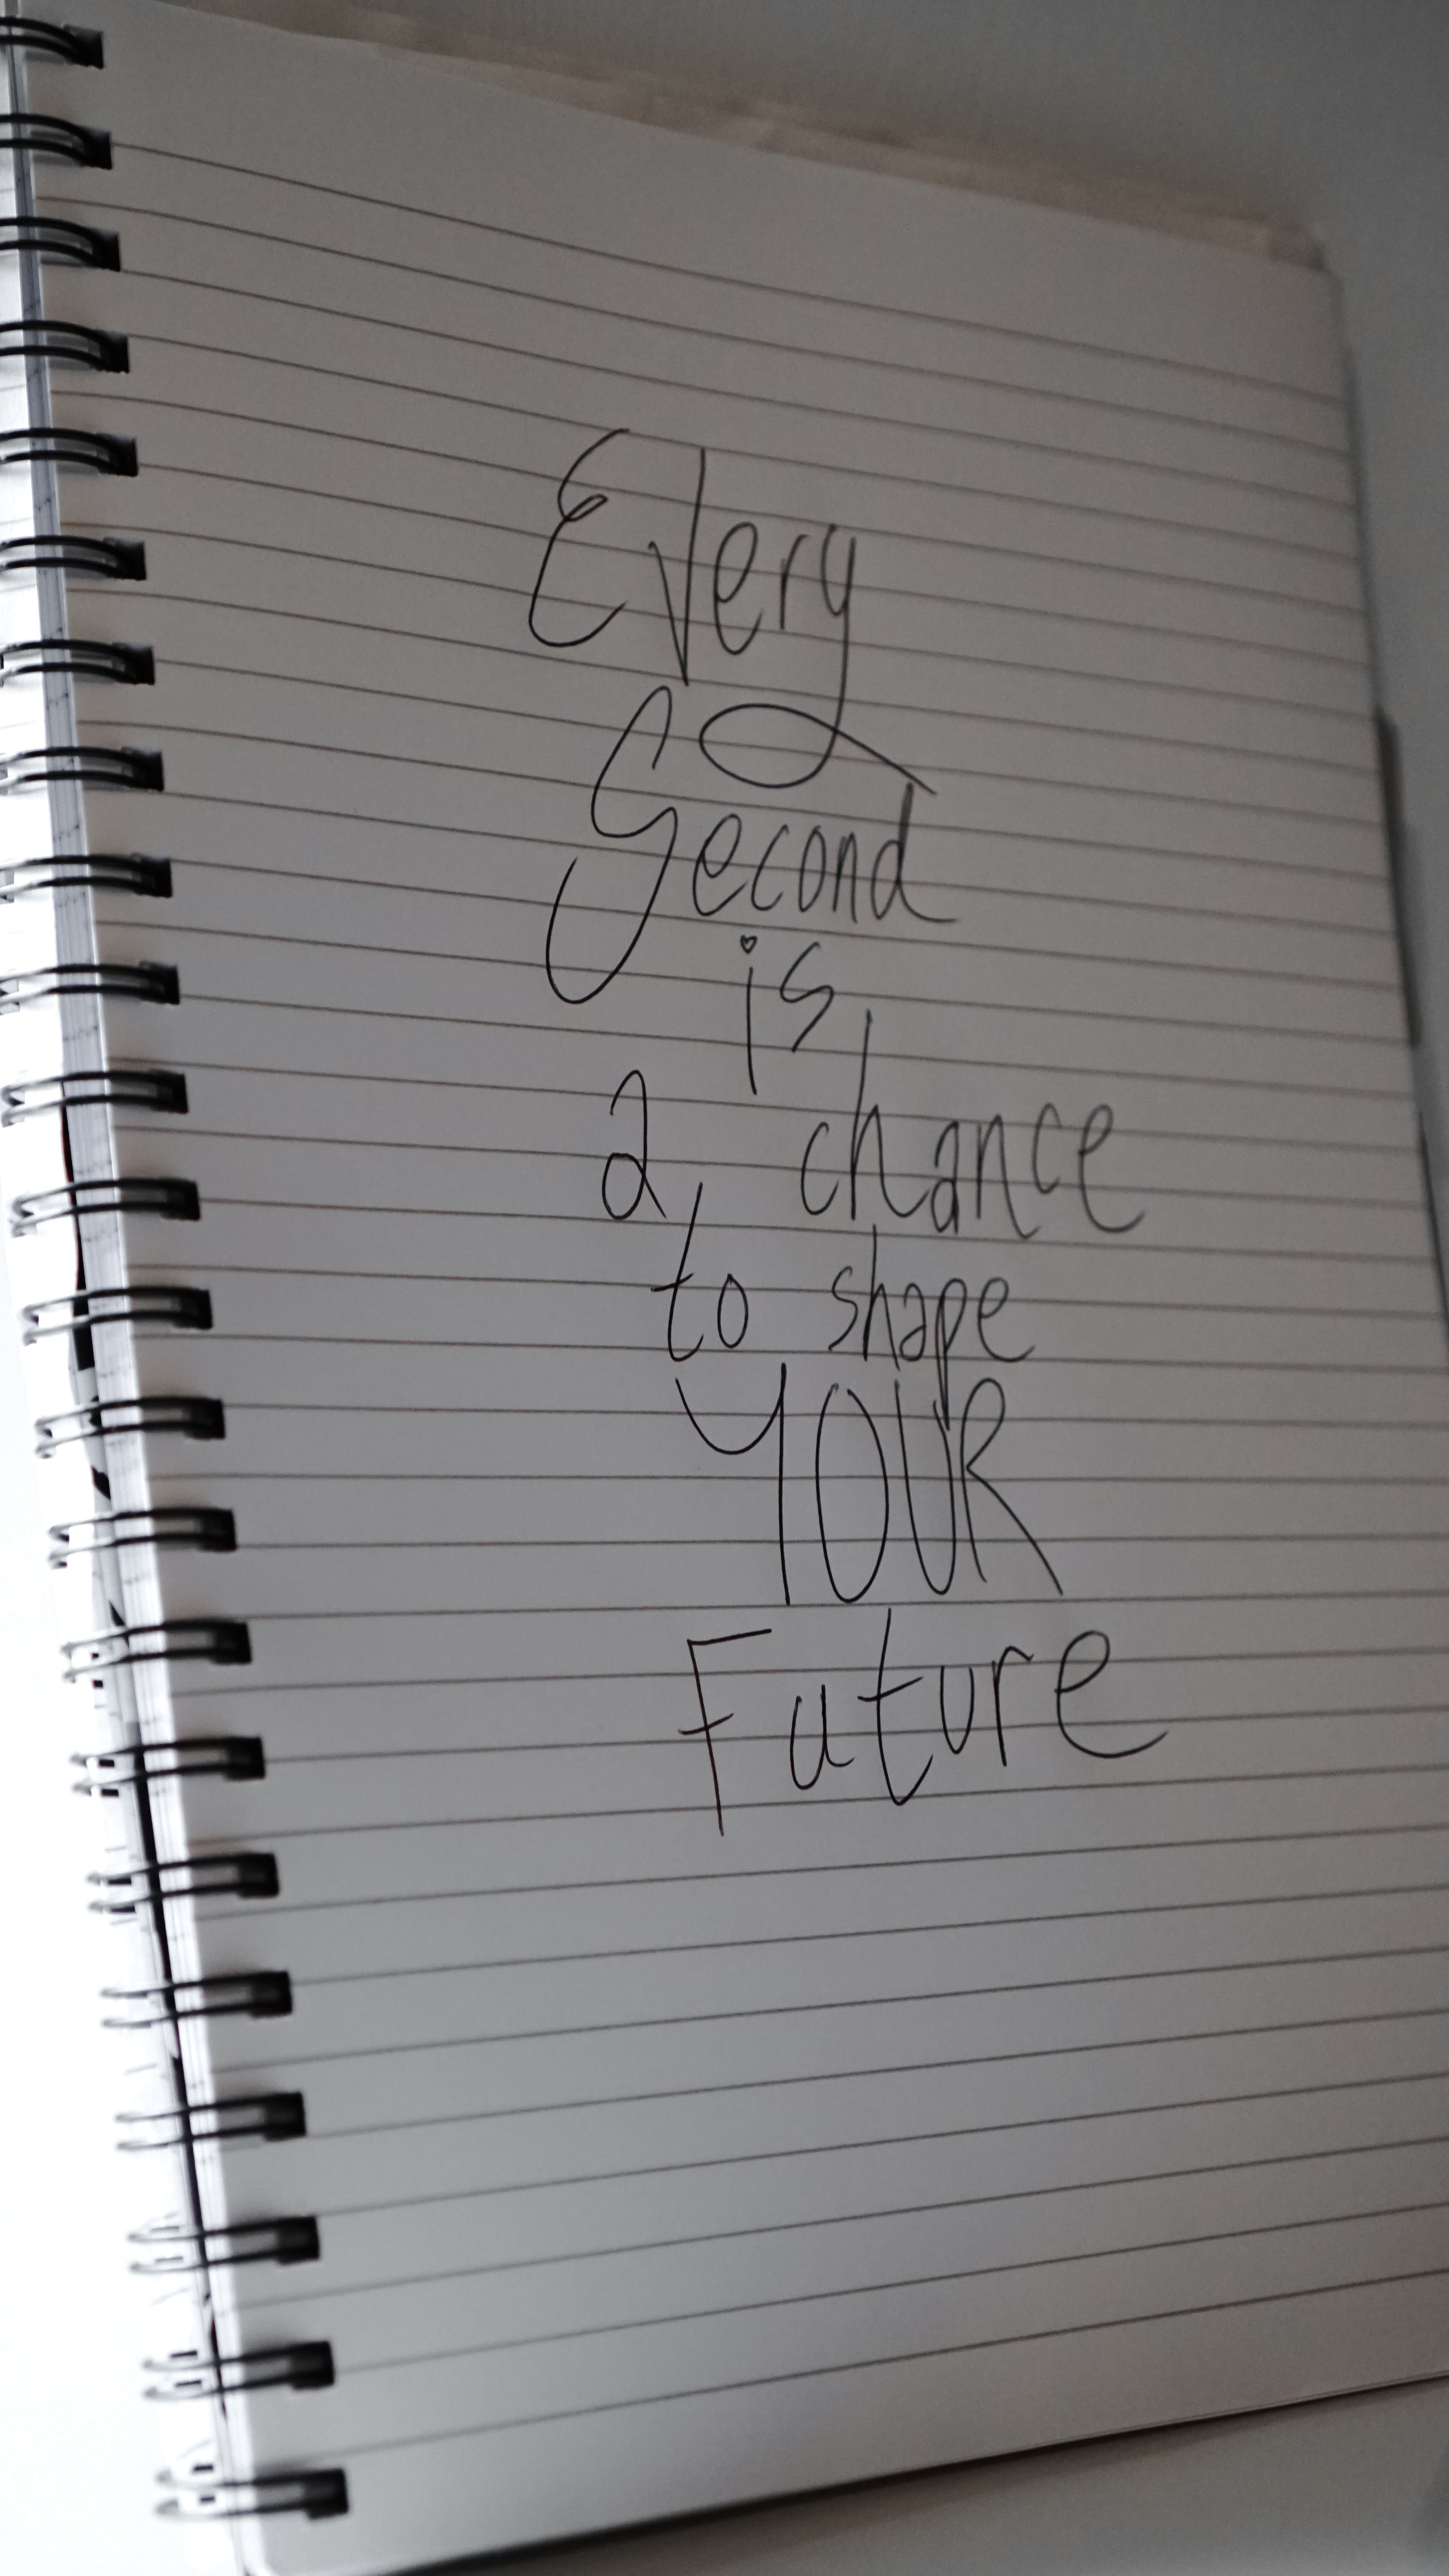 Every
Second
is
a chance
to shape
YOUR
Future